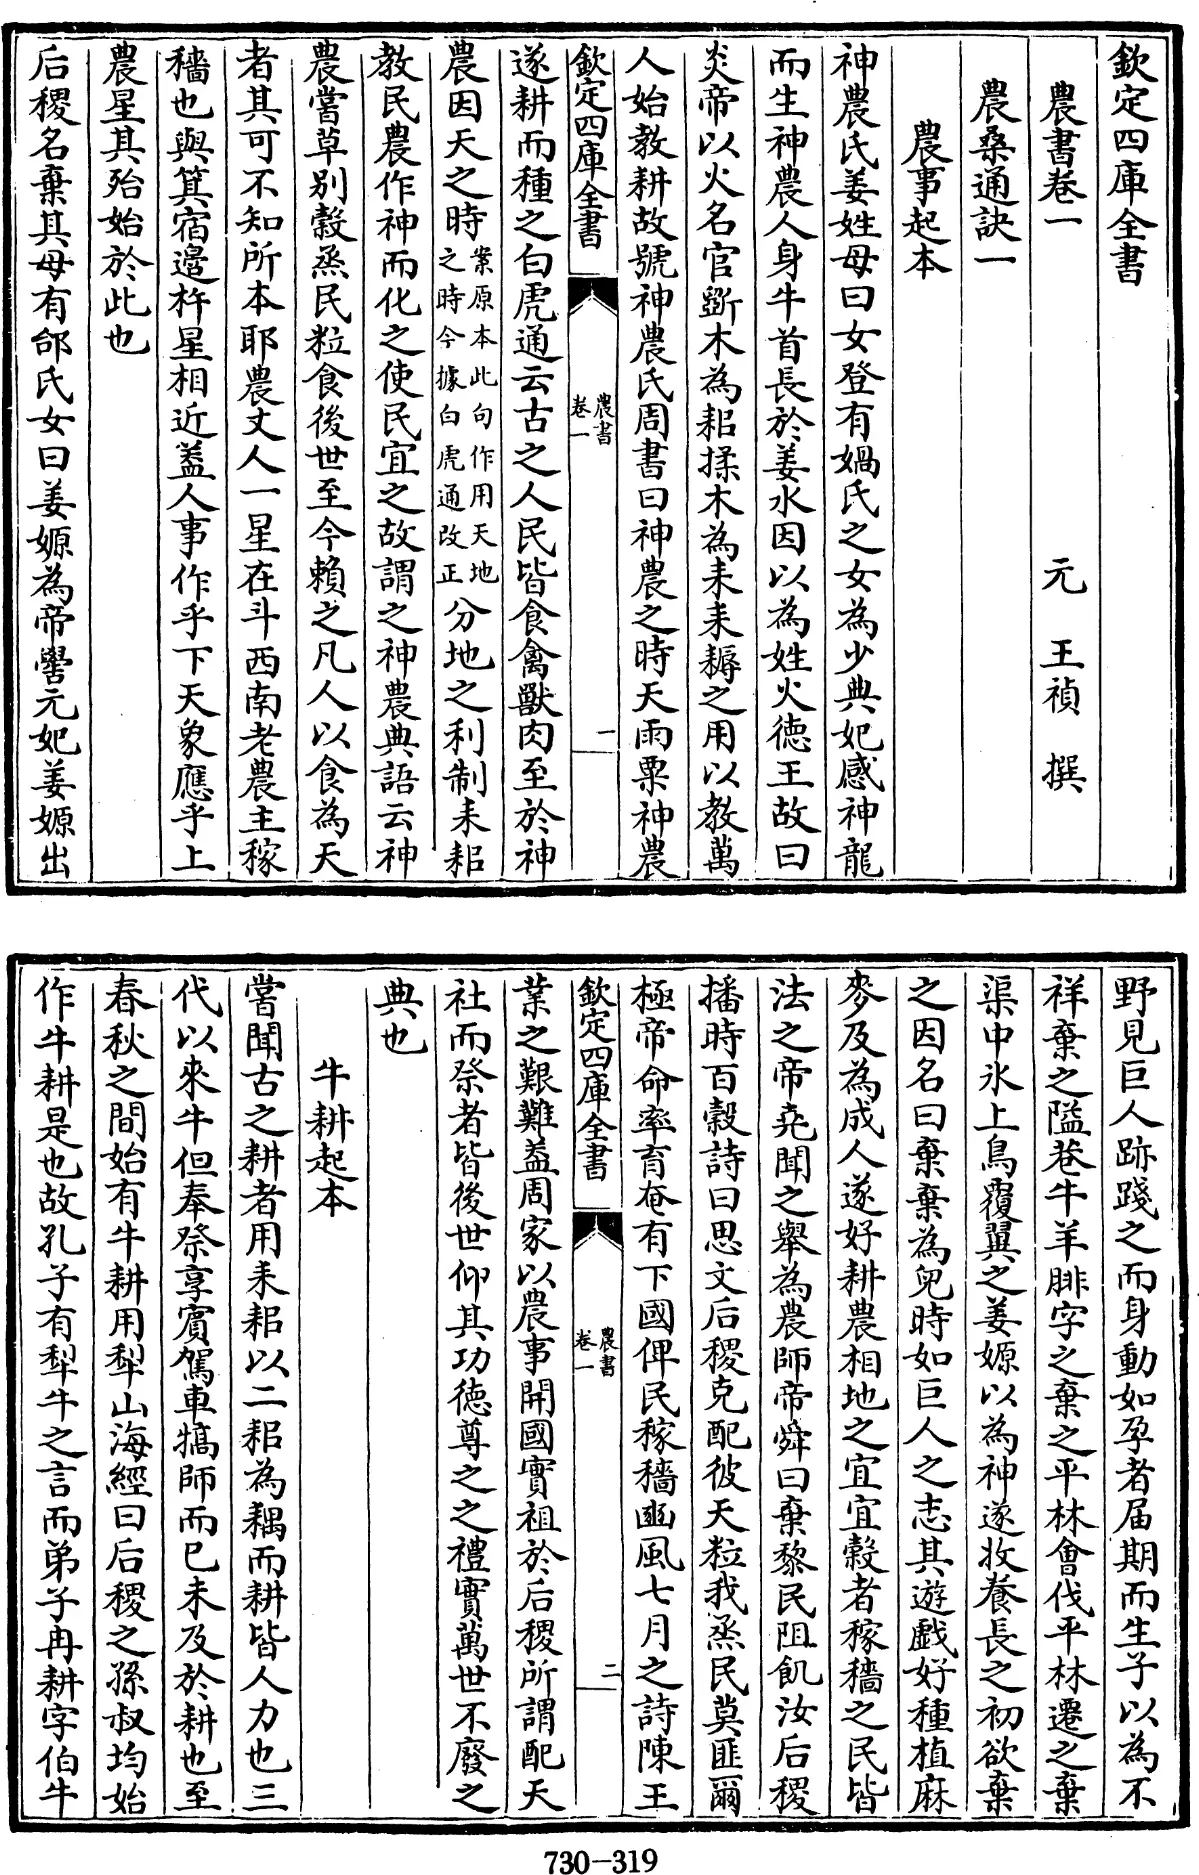 欽定四庫全書
農書卷一
元 王禎 撰
農桑通訣一
農事起本
神農氏姜姓母曰女登有媧氏之女為少典妃感神龍
而生神農人身牛首長於姜水因以為姓火德王故曰
炎帝以火名官斵木為耜揉木為耒耒耨之用以教萬
人始教耕故號神農氏周書曰神農之時天雨粟神農
欽定四庫全書
農書
卷一
一
遂耕而種之白虎通云古之人民皆食禽獸肉至於神
農因天之時案原本此句作用天地之時今據白虎通改正分地之利制耒耜
教民農作神而化之使民宜之故謂之神農典語云神
農嘗草别穀烝民粒食後世至今賴之凡人以食為天
者其可不知所本耶農丈人一星在斗西南老農主稼
穡也與箕宿邉杵星相近葢人事作乎下天象應乎上
農星其殆始於此也
后稷名棄其母有邰氏女曰姜嫄為帝嚳元妃姜嫄出
野見巨人跡踐之而身動如孕者届期而生子以為不
祥棄之隘巷牛羊腓字之棄之平林會伐平林遷之棄
渠中氷上鳥覆翼之姜嫄以為神遂收養長之初欲棄
之因名曰棄棄為兒時如巨人之志其遊戲好種植麻
麥及為成人遂好耕農相地之宜宜穀者稼穡之民皆
法之帝堯聞之舉為農師帝舜曰棄黎民阻飢汝后稷
播時百穀詩曰思文后稷克配彼天粒我烝民莫匪爾
極帝命率育奄有下國俾民稼穡豳風七月之詩陳王
欽定四庫全書
農書
卷一
二
業之艱難葢周家以農事開國實祖於后稷所謂配天
社而祭者皆後世仰其功德尊之之禮實萬世不廢之
典也
牛耕起本
嘗聞古之耕者用耒耜以二耜為耦而耕皆人力也三
代以來牛但奉祭享賓駕車犒師而已未及於耕也至
春秋之間始有牛耕用犂山海經曰后稷之孫叔均始
作牛耕是也故孔子有犂牛之言而弟子冉耕字伯牛
730-319